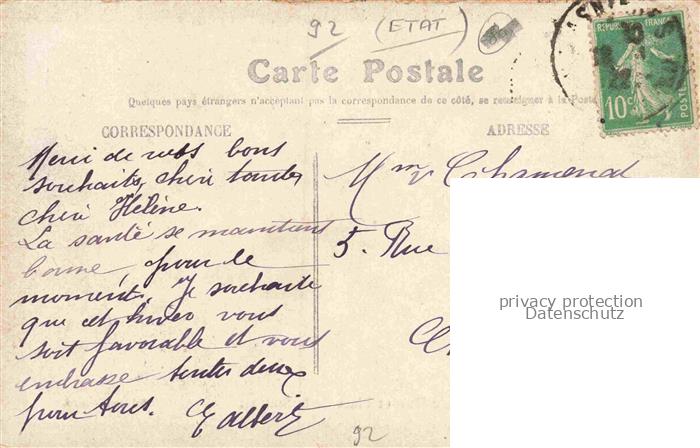 92 (ETAT)
ASNIE
REPUBLIQUE FRANÇAISE
10c
POSTES
Carte Postale
Quelques pays étrangers n'acceptant pas la correspondance de ce côté, se renseigner à la Poste
CORRESPONDANCE
ADRESSE
Merci de vos bons
souhaits, chère tante,
chère Hélène.
La santé se maintient
bonne, pour le
moment. Je souhaite
que cet hiver vous
soit favorable et vous
embrasse toutes deux
pour tous.
Mme
5. Rue
privacy protection
Datenschutz
92